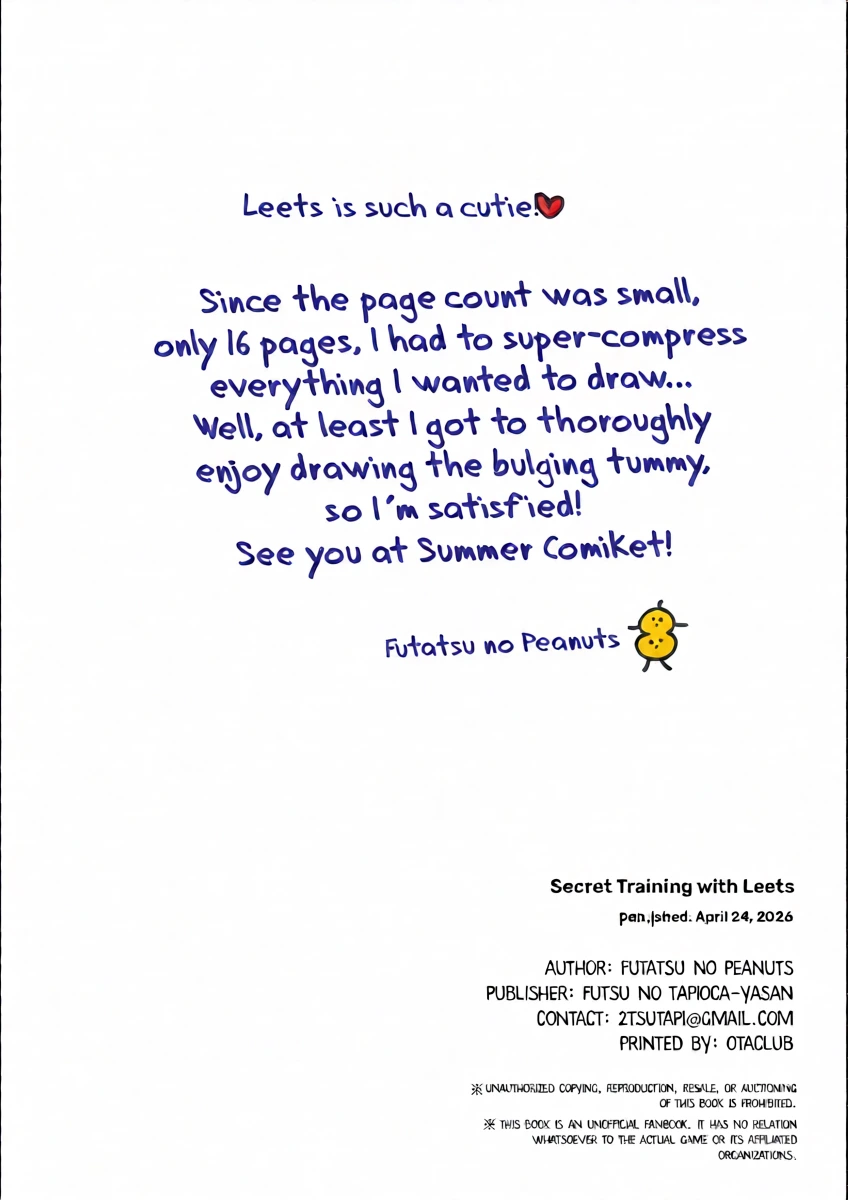 Leets is such a cutie!
Since the page count was small,
only 16 pages, I had to super-compress
everything I wanted to draw...
Well, at least I got to thoroughly
enjoy drawing the bulging tummy,
so I'm satisfied!
See you at Summer Comiket!
Futatsu no Peanuts
Secret Training with Leets
April 24, 2026
AUTHOR: FUTATSU NO PEANUTS
PUBLISHER: FUTSU NO TAPIOCA-YASAN
CONTACT: 2TSUTAPI@GMAIL.COM
PRINTED BY: OTACLUB
※ UNAUTHORIZED COPYING, REPRODUCTION, RESALE, OR AUCTIONING
OF THIS BOOK IS PROHIBITED.
※ THIS BOOK IS AN UNOFFICIAL FANBOOK. IT HAS NO RELATION
WHATSOEVER TO THE ACTUAL GAME OR ITS AFFILIATED
ORGANIZATIONS.